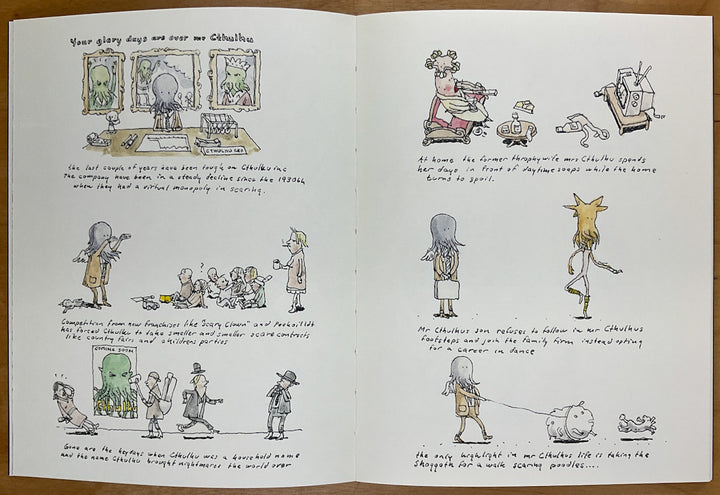 Your glory days are over mr Cthulhu
CTHULHU CEO
the last couple of years have been tough on Cthulhu inc
The company have been in a steady decline since the 1930th
when they had a virtual monopoly in scaring.
?
Competition from new franchises like "Scary Clown" and
has forced Cthulhu to take smaller and smaller scare contracts
like country fairs and childrens parties
COMING SOON
Gone are the heydays when Cthulhu was a household name
and the name Cthulhu brought nightmares the world over
At home the former throphy wife mrs Cthulhu spends
her days in front of daytime soaps while the home
turns to spoil.
Mr Cthulhus son refuses to follow in mr Cthulhus
footsteps and join the family firm instead opting
for a career in dance
the only highlight in mr Cthulhus life is taking the
Shoggoth for a walk scaring poodles....